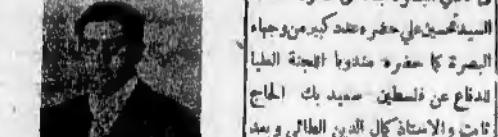 السيد تحسين علي حضره عدد كبير من وجهاء
البصرة كما حضره مندوبا اللجنة العليا
للدفاع عن فلسطين سعيد بك الحاج
ثابت والاستاذ كمال الدين الطائي وبعد